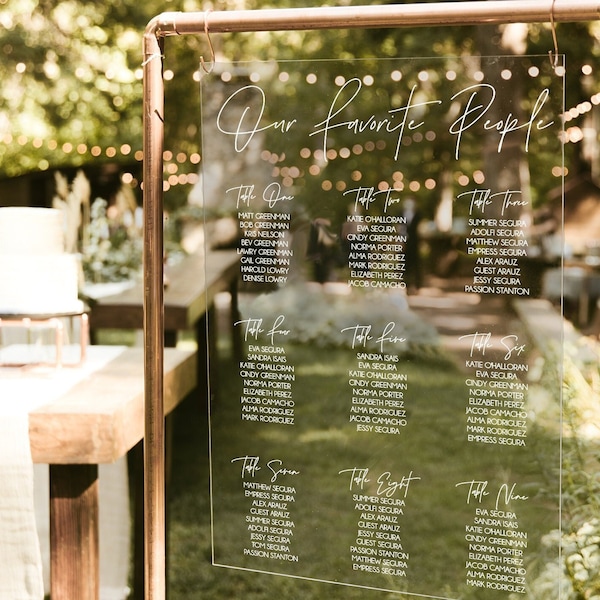 Our Favorite People
Table One
MATT GREENMAN
BOB GREENMAN
KRIS NELSON
BEV GREENMAN
LAWRY GREENMAN
GAIL GREENMAN
HAROLD LOWRY
DENISE LOWRY
Table Two
KATIE O'HALLORAN
EVA SEGURA
CINDY GREENMAN
NORMA PORTER
ALMA RODRIGUEZ
MARK RODRIGUEZ
ELIZABETH PEREZ
JACOB CAMACHO
Table Three
SUMMER SEGURA
ADOLFI SEGURA
MATTHEW SEGURA
EMPRESS SEGURA
ALEX ARAUZ
GUEST ARAUZ
JESSY SEGURA
PASSION STANTON
Table Four
EVA SEGURA
SANDRA ISAIS
KATIE O'HALLORAN
CINDY GREENMAN
NORMA PORTER
ELIZABETH PEREZ
JACOB CAMACHO
ALMA RODRIGUEZ
MARK RODRIGUEZ
Table Five
SANDRA ISAIS
EVA SEGURA
KATIE O'HALLORAN
CINDY GREENMAN
NORMA PORTER
ELIZABETH PEREZ
ALMA RODRIGUEZ
JACOB CAMACHO
JESSY SEGURA
Table Six
KATIE O'HALLORAN
EVA SEGURA
CINDY GREENMAN
NORMA PORTER
ELIZABETH PEREZ
JACOB CAMACHO
ALMA RODRIGUEZ
MARK RODRIGUEZ
EMPRESS SEGURA
Table Seven
MATTHEW SEGURA
EMPRESS SEGURA
ALEX ARAUZ
GUEST ARAUZ
SUMMER SEGURA
ADOLFI SEGURA
JESSY SEGURA
TOM SEGURA
PASSION STANTON
Table Eight
SUMMER SEGURA
ADOLFI SEGURA
ALEX ARAUZ
GUEST ARAUZ
JESSY SEGURA
GUEST SEGURA
PASSION STANTON
MATTHEW SEGURA
EMPRESS SEGURA
Table Nine
EVA SEGURA
SANDRA ISAIS
KATIE O'HALLORAN
CINDY GREENMAN
NORMA PORTER
ELIZABETH PEREZ
JACOB CAMACHO
ALMA RODRIGUEZ
MARK RODRIGUEZ